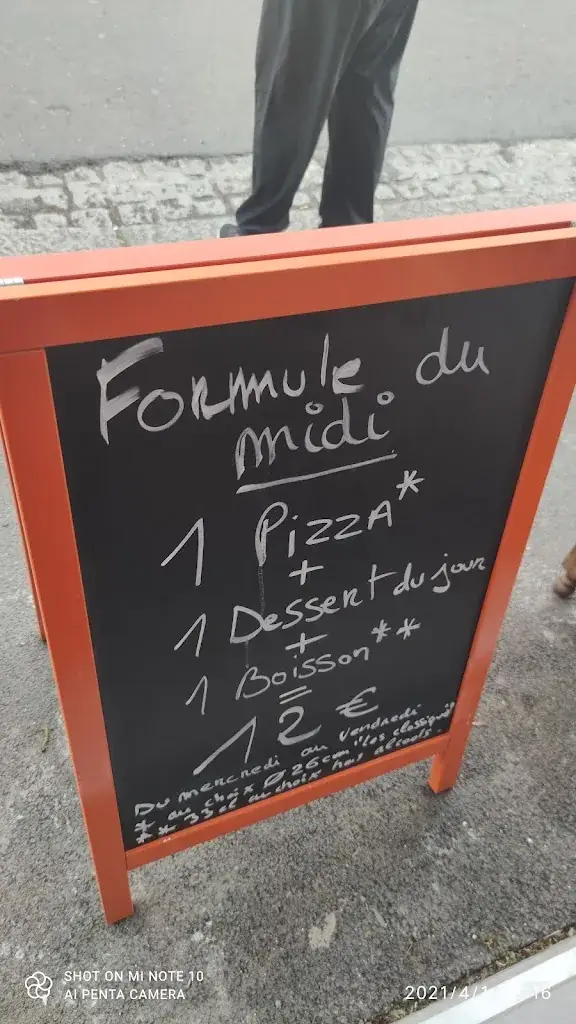 Formule du
midi
1 Pizza*
+
1 Dessert du jour
+
1 Boisson**
=
12 €
Du mercredi au vendredi
* au choix Ø 26 cm "les classiques"
** 33 cl au choix hors alcools.
SHOT ON MI NOTE 10
AI PENTA CAMERA
2021/4/1 16